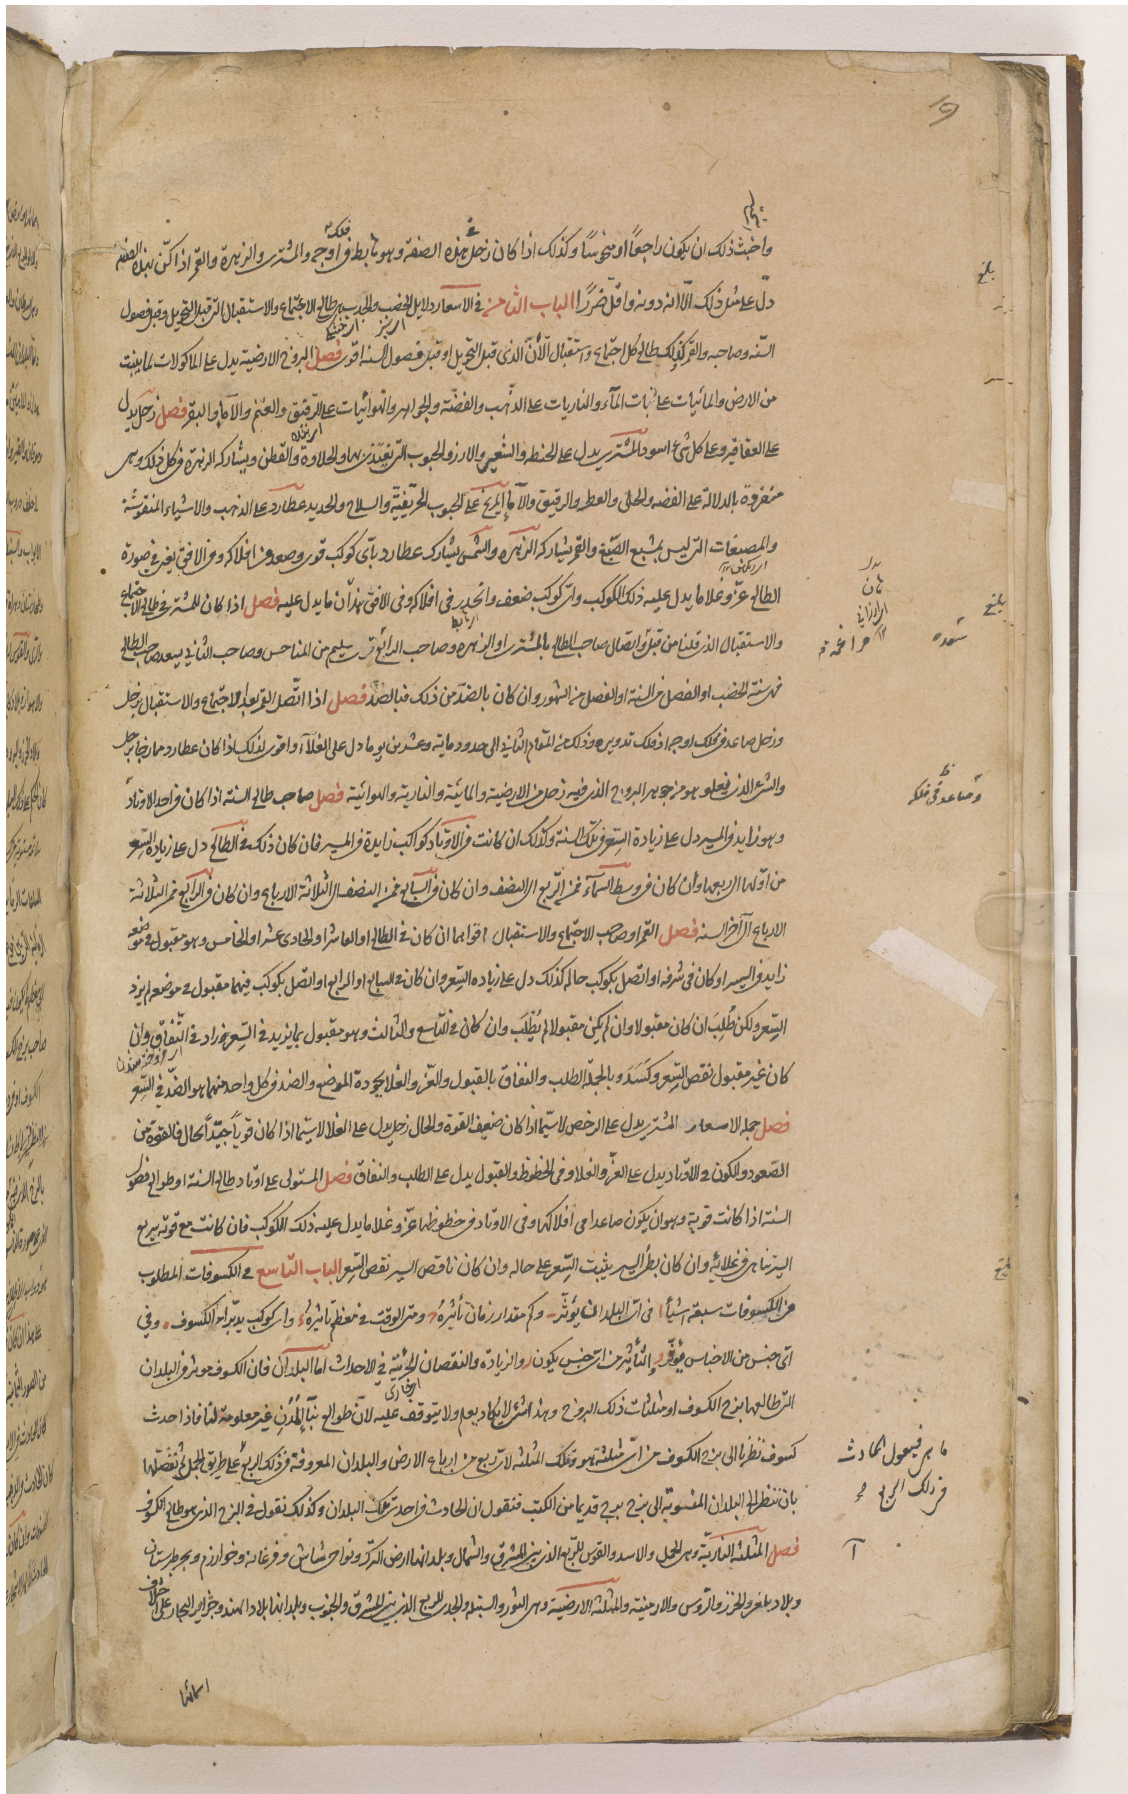 واخبث ذلك ان يكون راجعا او منحوسا وكذلك اذا كان زحل في هذه الصفة وهو هابط في فلك اوجه والمشتري والزهرة والقمر اذا كن بهذه الصفة
دل على مثل ذلك الا انه دونه واقل ضررا الباب الثامن في الاسعار دلايل الخصب والجدب من طالع الاجتماع والاستقبال الذي قبل التحويل وقبل فصول
السنة وصاحبه والقمر كذلك طالع كل اجتماع واستقبال الا ان الذي قبل التحويل او قبل فصول السنة اقوى فصل البروج الارضية يدل على الماكولات مما ينبت
من الارض والمائيات على نبات الماء والناريات على الذهب والفضة والجواهر والهوائيات على الرقيق والغنم والاكام والبقر فصل زحل يدل
على العقاقير وعلى كل شيء اسود المشتري يدل على الحنطة والشعير والارز والحبوب التي يغتذى بها والحلاوة والقطن ويشاركه الزهرة في كل ذلك وهي
منفردة بالدلالة على الفضة والحلي والعطر والرقيق والاماء المريخ على الحبوب الحريفية والسلاح والحديد عطارد على الذهب والاشياء المنقوشة
والمصبغات التي ليس بمشبع الصبغ والقمر يشاركه الزهره والشمس يشاركه عطارد باي كوكب قوي وصعد في افلاكه وفي الافق يعني في صورة
الطالع عز وغلا ما يدل عليه ذلك الكوكب واي كوكب ضعف وانحدر في افلاكه وفي الافق هان ما يدل عليه فصل اذا كان المشتري في طالع الاجتماع
والاستقبال الذي قلنا من قبل او اتصال صاحب الطالع بالمشتري او الزهره وصاحب الرابع سليم من المناحس وصاحب الثاني يسعد صاحب الطالع
فهي سنة الخصب او الفصل من السنة او الفصل من الشهور وان كان بالضد من ذلك فبالضد فصل اذا اتصل القمر بعد الاجتماع والاستقبال بزحل
وزحل صاعد في فلك اوجه او فلك تدويره وذلك من المقام الثاني الى حدود مايه وعشرين يوما دل على الغلاء واقوى لذلك اذا كان عطارد ممازجا بزحل
والشيء الذي يغلو هو من جوهر البروج الذي فيه زحل من الارضية والمائية والنارية والهوائية فصل صاحب طالع السنة اذا كان في احد الاوتاد
وهو زايد في المسير دل على زيادة السعر في تلك السنة وكذلك ان كانت في الاوتاد كواكب زايدة في المسير فان كان ذلك في الطالع دل على زيادة السعر
من اولها الى ربعها وان كان في وسط السماء فمن الربع الى النصف وان كان في السابع فمن النصف الى ثلاثة الارباع وان كان في الرابع فمن الثلاثة
الارباع الى آخر السنه فصل القمر او صاحب الاجتماع والاستقبال اقواهما ان كان في الطالع او العاشر او الحادى عشر او الخامس وهو مقبول في موضعه
زايد في السير او كان في شرفه او اتصل بكوكب حاله كذلك دل على زياده السعر وان كان في السابع او الرابع او اتصل بكوكب فيهما مقبول في موضعه لم يزد
السعر ولكن طلب ان كان مقبولا وان لم يكن مقبولا لم يطلب وان كان في التاسع والثالث وهو مقبول بما يزيد في السعر وزاد في النفاق وان
كان غير مقبول نقص السعر وكسد وبالجملة الطلب والنفاق بالقبول والعز والغلا بجودة الموضع والضد في كل واحد منهما هو الضد في السعر
فصل جمله الاسعار المشتري يدل على الرخص لا سيما اذا كان ضعيف القوة والحال زحل يدل على الغلا لا سيما اذا كان قويا جيد الحال فالقوة من
الصعود والكون في الاوتاد يدل على العز والغلا وفي الحظوظ والقبول يدل على الطلب والنفاق فصل المستولى على اوتاد طالع السنة او طوالع فصول
السنة اذا كانت قوية وهو ان يكون صاعدا في افلاكها وفي الاوتاد في حظوظها عز وغلا ما يدل عليه ذلك الكوكب فان كانت مع قوته سريع
السير تناهى في غلائه وان كان بطئ السير يثبت السعر على حاله وان كان ناقص السير نقص السعر الباب التاسع في الكسوفات المطلوب
من الكسوفات سبعة اشيأ في اي البلدان يؤثر وكم مقدار زمان تأثيره ومتى الوقت في معظم تأثيره واي كوكب يدبر امر الكسوف وفي
اي جنس من الاجناس يؤثر والتأثير من اي جنس يكون والزيادة والنقصان الجزئية في الاحداث اما البلدان فان الكسوف موثر في البلدان
التي طالعها برج الكسوف او مثلثات ذلك البروج وهذا شيء لا يكاد يعلم ولا يتوقف عليه لان طوالع بناء المدن غير معلومة لنا فاذا حدث
كسوف نظرنا الى برج الكسوف من اي مثلثة هو وتلك المثلثة لاي ربع من ارباع الارض والبلدان المعروفة في ذلك الربع على طريق الجمل ثم نفصلها
بان ننظر الى البلدان المنسوبة الى برج برج قديما من الكتب فنقول ان الحادث في احدى تلك البلدان وكذلك نقول في البرج الذي هو طالع الكسوف
فصل المثلثه النارية وهي الحمل والاسد والقوس للربع الذي بين المشرق والشمال وبلدانها ارض الترك ونواحي شاش وفرغانه وخوارزم وبحر طبرستان
وبلاد بلغر والخزر والروس والارمينية والمثلثة الارضية وهي الثور والسنبلة والجدي للربع الذي بين المشرق والجنوب وبلدانها بلاد الهند وجزاير البحار على اختلاف
اسمائها
بلغ
بلغ
وصاعد في فلكه
ما هي فيقول الحادث
في ذلك الربع